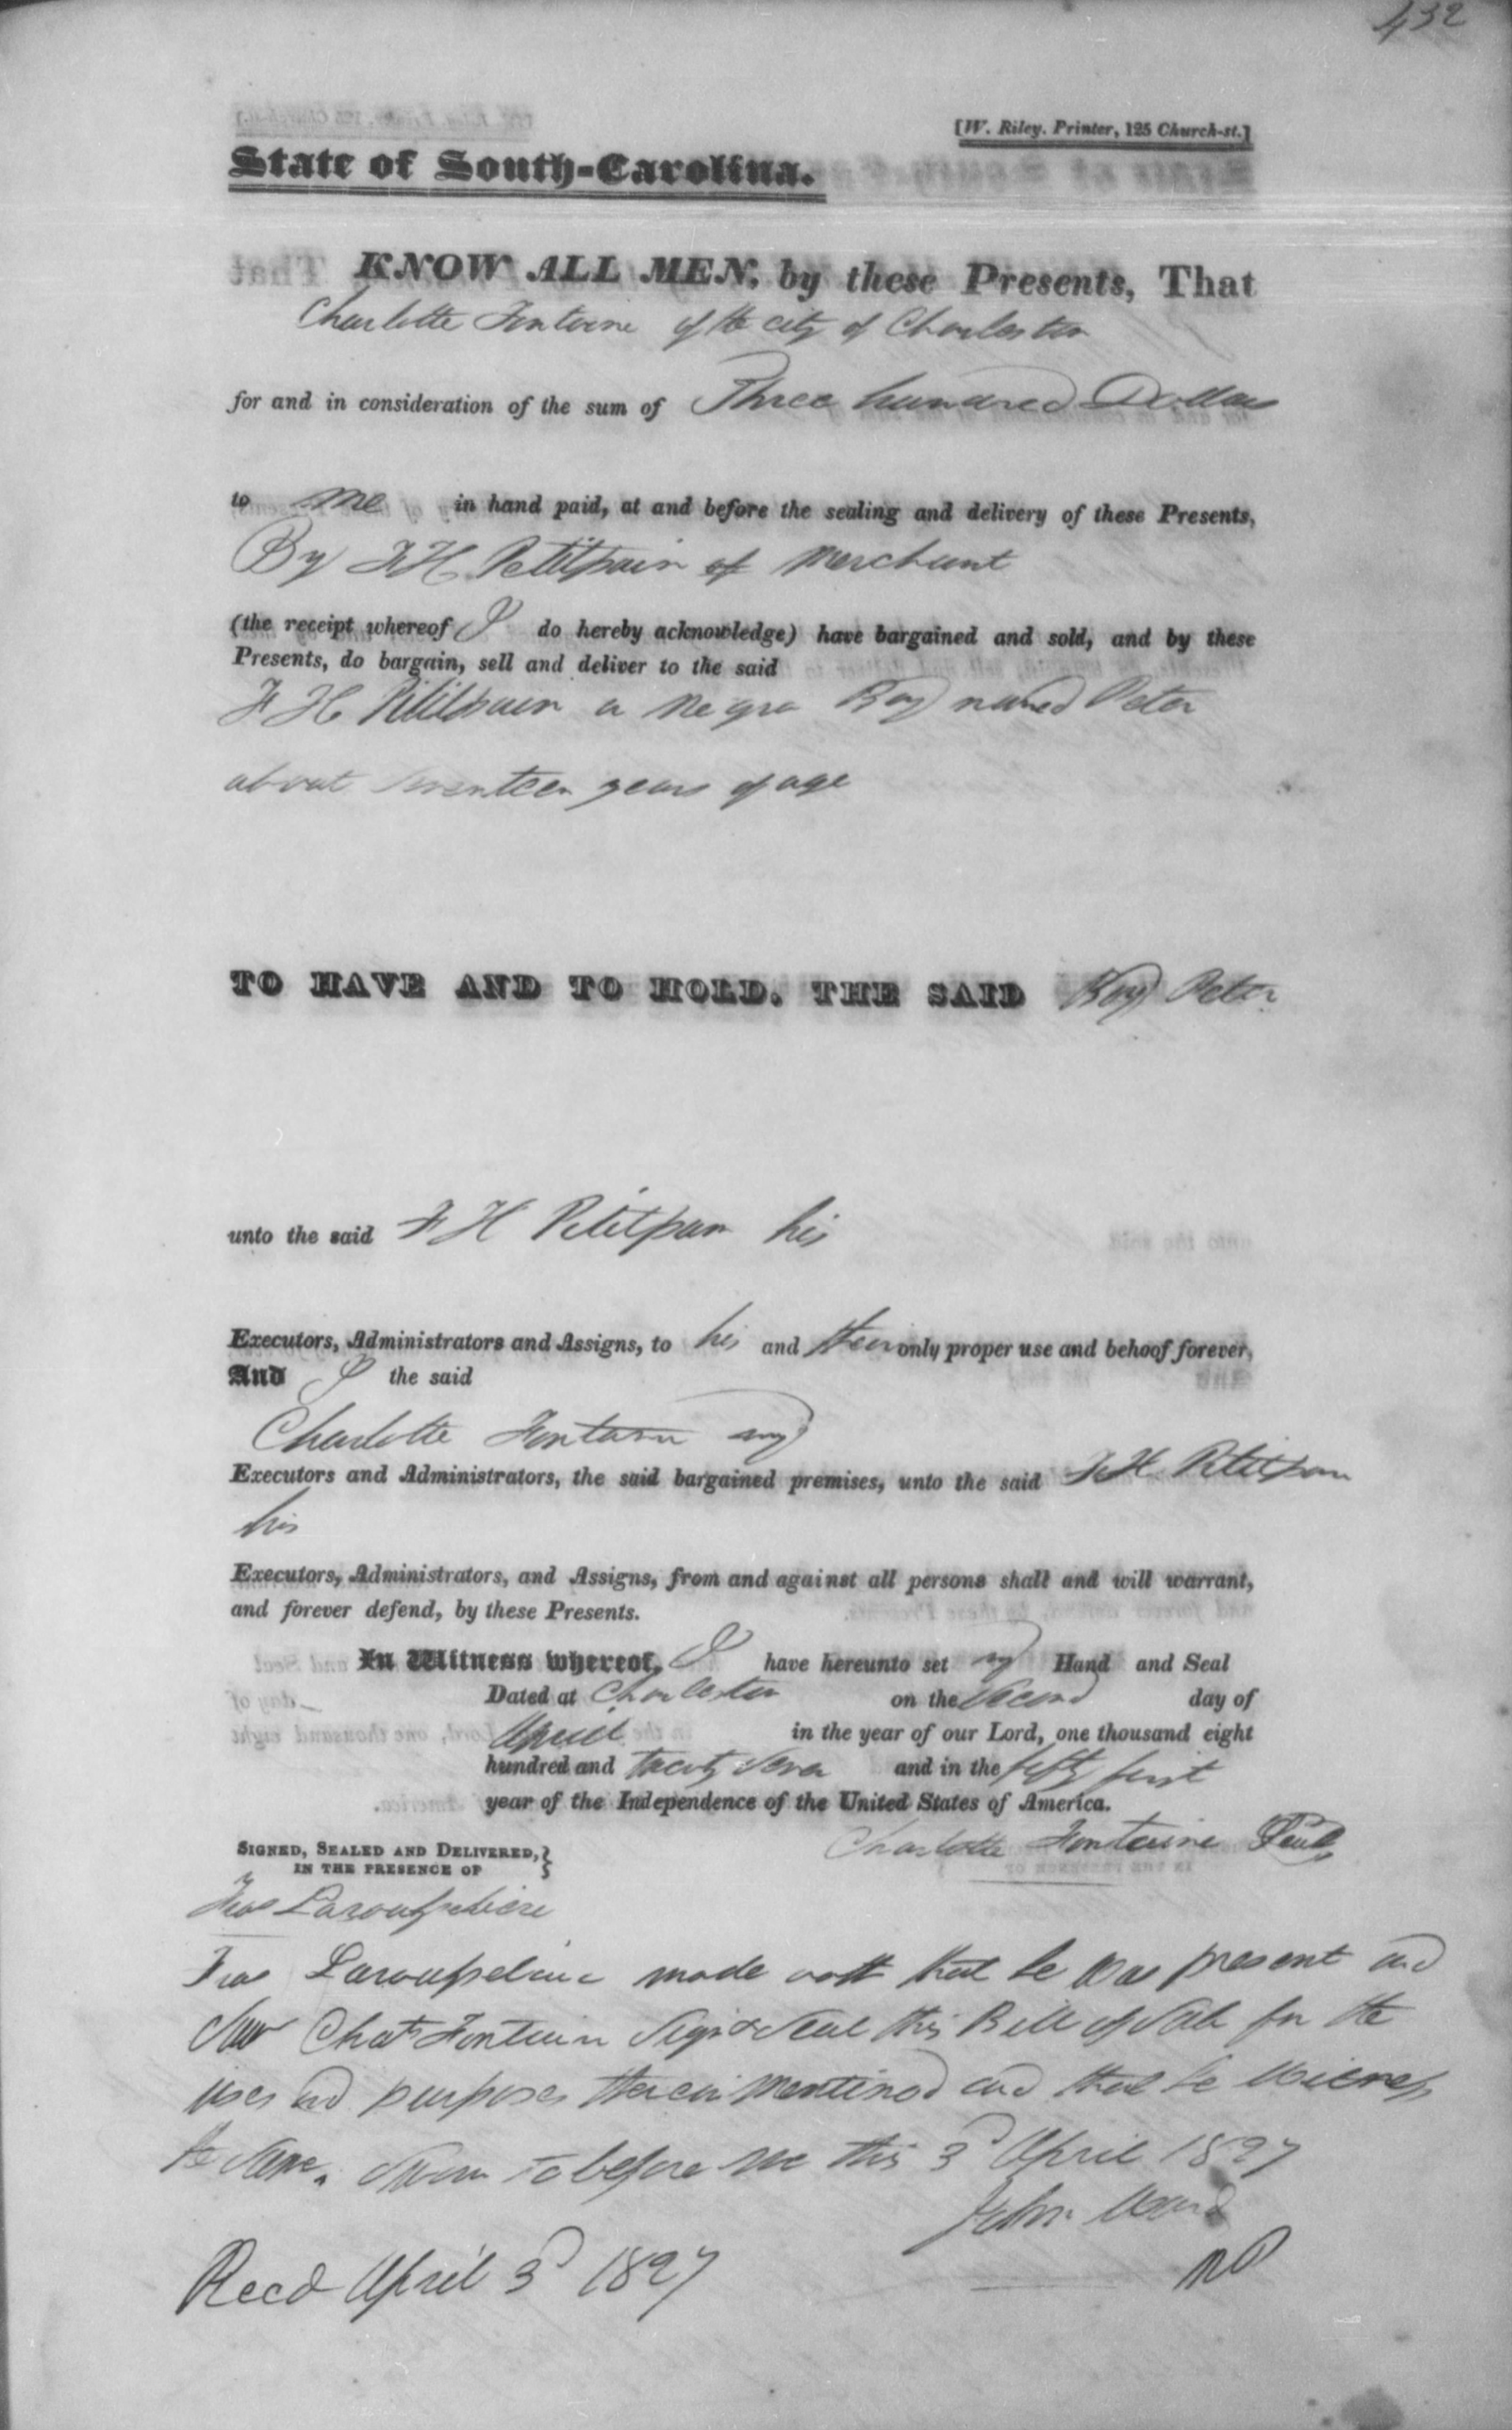 432
[W. Riley. Printer, 125 Church-st.]
State of South-Carolina.
KNOW ALL MEN, by these Presents, That
Charlotte Fontaine of the city of Charleston
for and in consideration of the sum of Three hundred Dollars
to me in hand paid, at and before the sealing and delivery of these Presents,
By F H Petitpain of Merchant
(the receipt whereof I do hereby acknowledge) have bargained and sold, and by these
Presents, do bargain, sell and deliver to the said
F H Petitpain a negro Boy named Peter
about seventeen years of age
TO HAVE AND TO HOLD, THE SAID Boy Peter
unto the said F H Petitpain his
Executors, Administrators and Assigns, to his and their only proper use and behoof forever,
And I the said
Charlotte Fontaine my
Executors and Administrators, the said bargained premises, unto the said F H Petitpain
his
Executors, Administrators, and Assigns, from and against all persons shall and will warrant,
and forever defend, by these Presents.
In Witness whereof, I have hereunto set my Hand and Seal
Dated at Charleston on the Second day of
April in the year of our Lord, one thousand eight
hundred and twenty Seven and in the fifty first
year of the Independence of the United States of America.
Charlotte Fontaine Seal
SIGNED, SEALED AND DELIVERED,
IN THE PRESENCE OF
made oath that he was present and
Saw Chate Fontain Sign & Seal this Bill of Sale for the
uses and purposes therein mentioned and that he witness
the same. Sworn to before me this 3d April 1827
John Ward
NP
Recd April 3d 1827